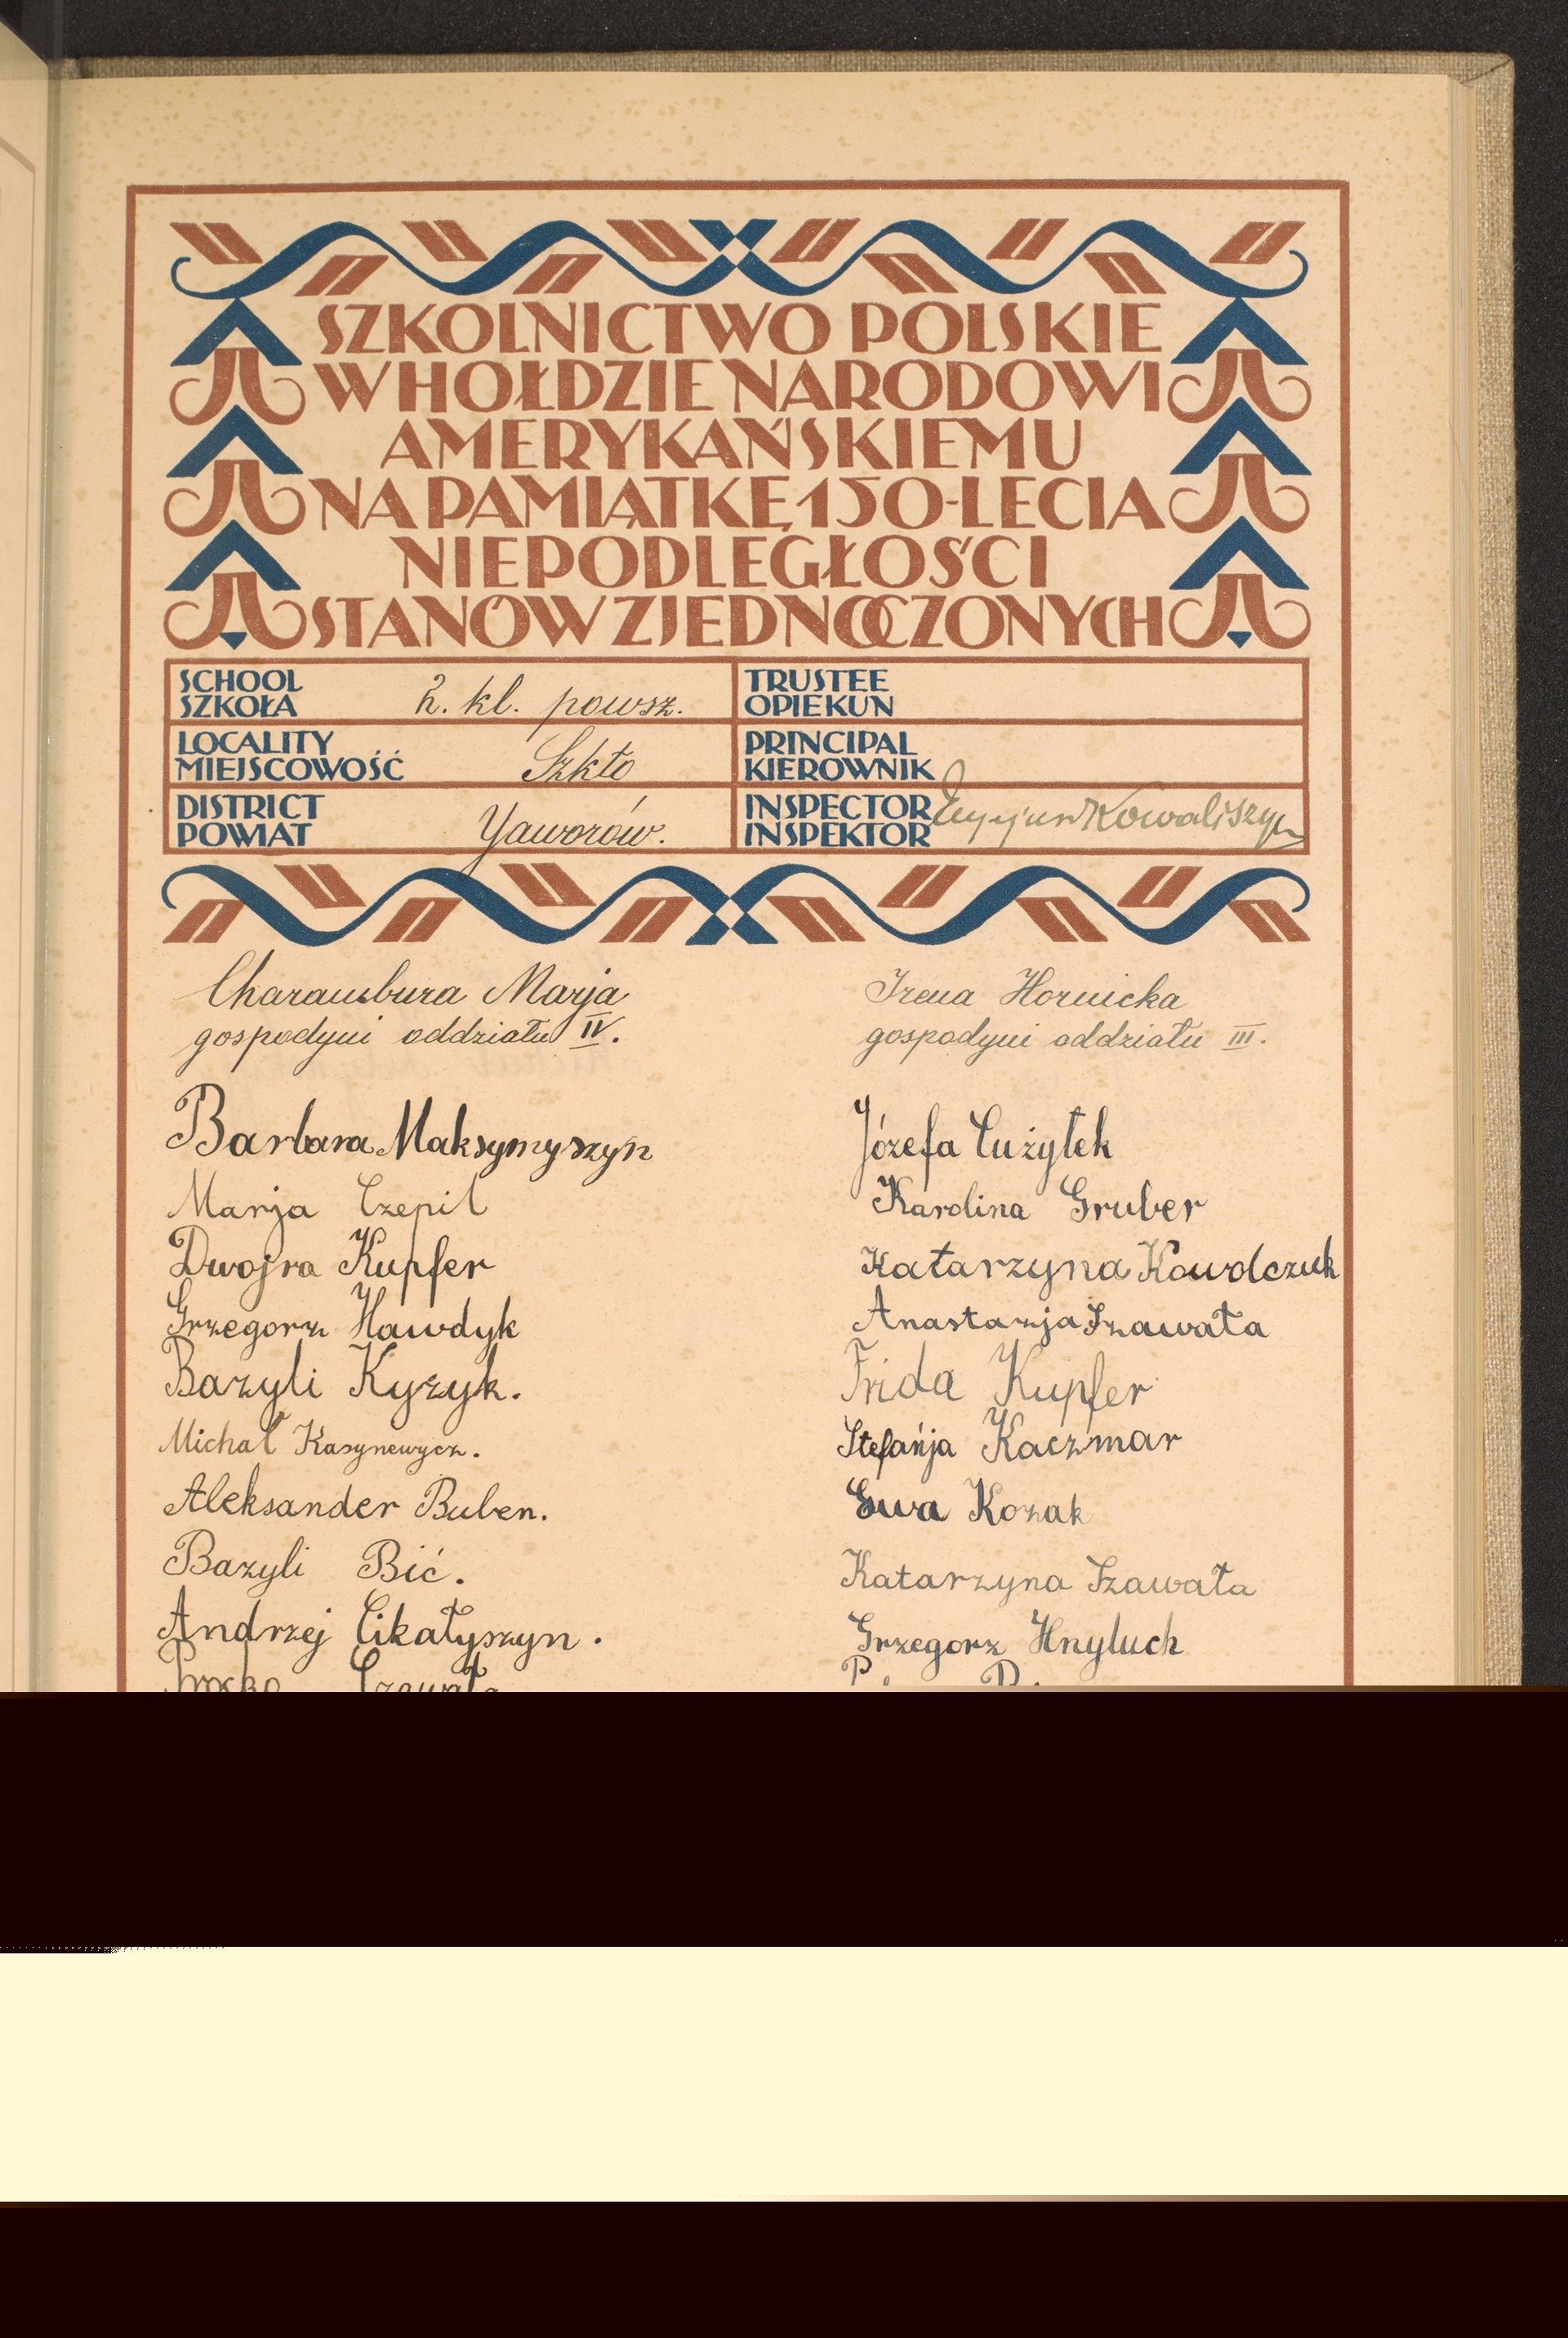 SZKOLNICTWO POLSKIE
W HOŁDZIE NARODOWI
AMERYKAŃSKIEMU
NA PAMIĄTKĘ 150-LECIA
NIEPODLEGŁOŚCI
STANÓW ZJEDNOCZONYCH
SCHOOL
SZKOŁA
2. kl. powsz.
TRUSTEE
OPIEKUN
LOCALITY
MIEJSCOWOŚĆ
Szkło
PRINCIPAL
KIEROWNIK
DISTRICT
POWIAT
Jaworów.
INSPECTOR
INSPEKTOR
Kowaliszyn
Charambura Marja
gospodyni oddziału IV.
Barbara Maksymyszyn
Marja Czepil
Dwojra Kupfer
Grzegorz Hawdyk
Bazyli Kyzyk.
Michał Kasynewycz.
Aleksander Buben.
Bazyli Bić.
Andrzej Cikałyszyn.
Irena Hornicka
gospodyni oddziału III.
Józefa Cużytek
Karolina Gruber
Katarzyna Kowolczuk
Anastazja Szawała
Frida Kupfer
Stefańja Kaczmar
Ewa Kozak
Katarzyna Szawała
Grzegorz Hnyluch